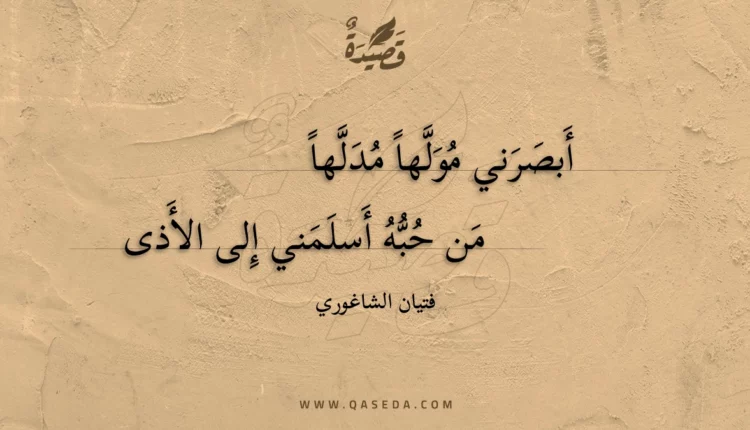 قَصِيْدَةٌ
أَبصَرَني مُوَلَّهاً مُدَلَّهاً
مَن حُبُّهُ أَسلَمَني إِلى الأَذى
فتيان الشاغوري
WWW.QASEDA.COM